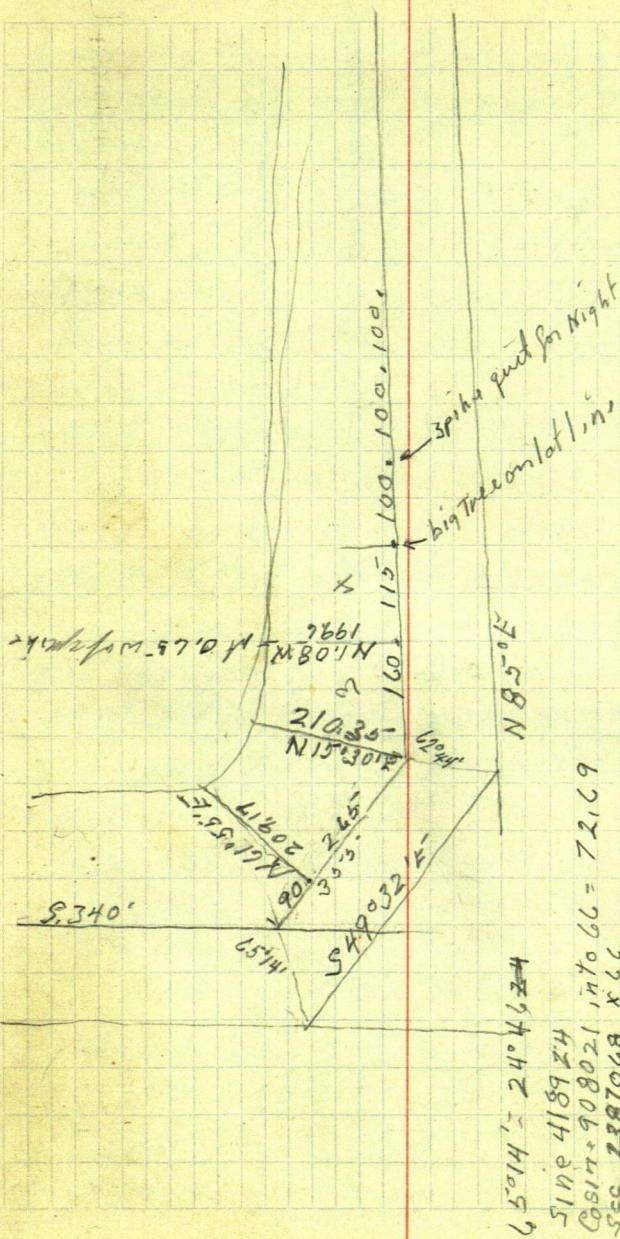 100. 100. 100.
spike quit for Night
big Tree on lot line
115
X
N 0.65 W of spike
N1.08W
1996
160.
3
210.35
N15°30'E
62°44'
N85°E
N61°55'E
209.17
265
355
90.
S.340'
65°14'
S49°32'E
65°14' = 24°46'
Sine 418924
Cosine 908021 into 66 = 72.69
Sec 2387068 x 66